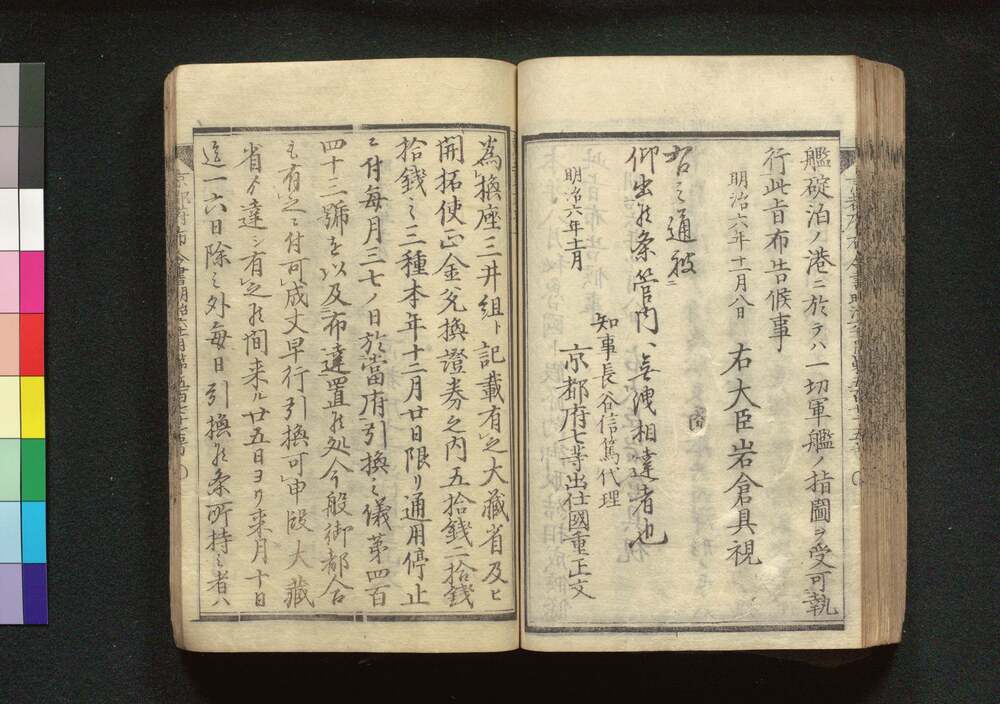 艦碇泊ノ港ニ於テハ一切軍艦ノ指圖ヲ受可執
行此旨布告候事
明治六年十一月八日
右大臣岩倉具視
右之通被
仰出候条管内ヘ無洩相達者也
明治六年十一月
知事長谷信篤代理
京都府七等出仕國重正文
為換座三井組ト記載有之大藏省及ヒ
開拓使正金兌換證券之内五拾錢二拾錢
拾錢之三種本年十二月廿日限リ通用停止
ニ付毎月三七ノ日於當府引換之儀第四百
四十二號を以及布達置候処今般御都合
も有之ニ付可成丈早行引換可申段大藏
省ゟ達シ有之候間来ル廿五日ヨリ来月十日
迄一六日除之外毎日引換候条所持之者ハ